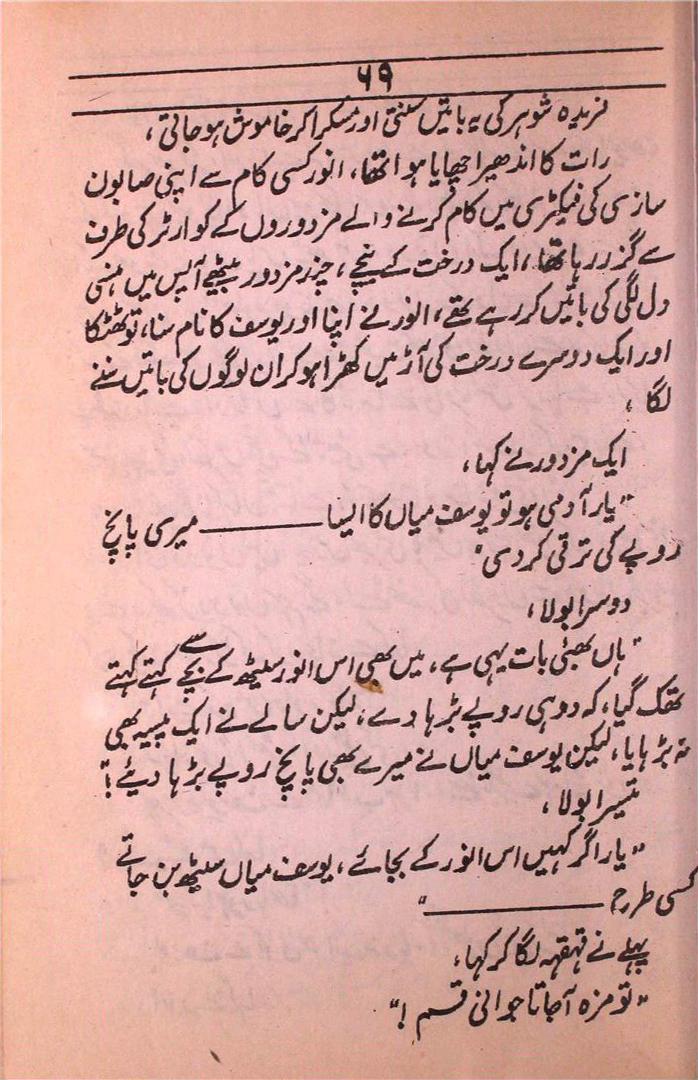 ۶۹
فریدہ شوہر کی یہ باتیں سنتی اور مسکرا کر خاموش ہو جاتی،
رات کا اندھیرا چھایا ہوا تھا، انور کسی کام سے اپنی صابون
سازی کی فیکٹری میں کام کرنے والے مزدوروں کے کوارٹر کی طرف
سے گزر رہا تھا، ایک درخت کے نیچے، چند مزدور بیٹھے آپس میں ہنسی
دل لگی کی باتیں کر رہے تھے، انور نے اپنا اور یوسف کا نام سنا، تو ٹھٹکا
اور ایک دوسرے درخت کی آڑ میں کھڑا ہو کر ان لوگوں کی باتیں سننے
لگا،
ایک مزدور نے کہا،
"یار آدمی ہو تو یوسف میاں کا ایسا ——— میری پانچ
روپے کی ترقی کر دی"
دوسرا بولا،
"ہاں بھئی بات یہی ہے، میں بھی اس انور سیٹھ کے بچے سے کہتے کہتے
تھک گیا، کہ دو ہی روپے بڑہا دے، لیکن سالے نے ایک پیسہ بھی
نہ بڑہایا، لیکن یوسف میاں نے میرے بھی پانچ روپے بڑہا دیئے!"
تیسرا بولا،
"یار اگر کہیں اس انور کے بجائے، یوسف میاں سیٹھ بن جاتے
کسی طرح ———"
پہلے نے قہقہہ لگا کر کہا،
"تو مزہ آ جاتا جوانی قسم!"